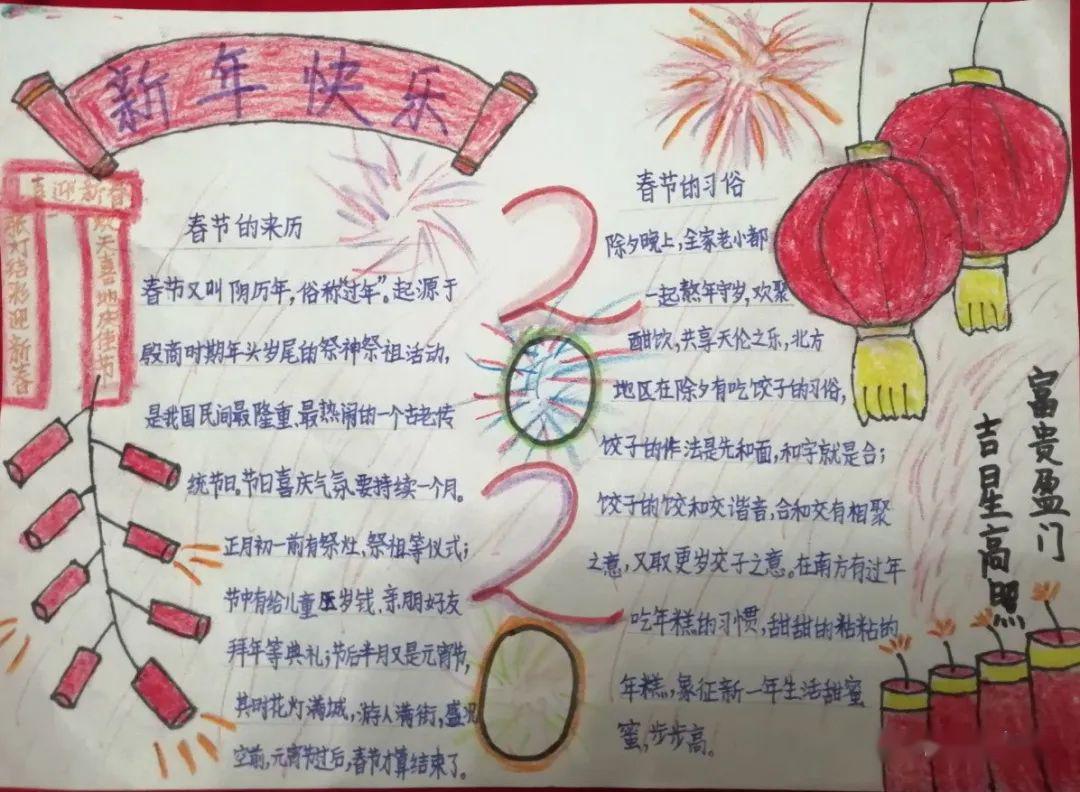 新年快乐
喜迎新春
张灯结彩迎新春
欢天喜地庆佳节
春节的来历
春节又叫阴历年，俗称“过年”。起源于
殷商时期年头岁尾的祭神祭祖活动，
是我国民间最隆重、最热闹的一个古老传
统节日。节日喜庆气氛要持续一个月。
正月初一前有祭灶，祭祖等仪式；
节中有给儿童压岁钱、亲朋好友
拜年等典礼；节后半月又是元宵节，
其时花灯满城，游人满街，盛况
空前，元宵节过后，春节才算结束了。
2020
春节的习俗
除夕晚上，全家老小都
一起熬年守岁，欢聚
酣饮，共享天伦之乐，北方
地区在除夕有吃饺子的习俗，
饺子的作法是先和面，和字就是合；
饺子的饺和交谐音，合和交有相聚
之意，又取更岁交子之意。在南方有过年
吃年糕的习惯，甜甜的粘粘的
年糕，象征新一年生活甜蜜
蜜，步步高。
富贵盈门
吉星高照